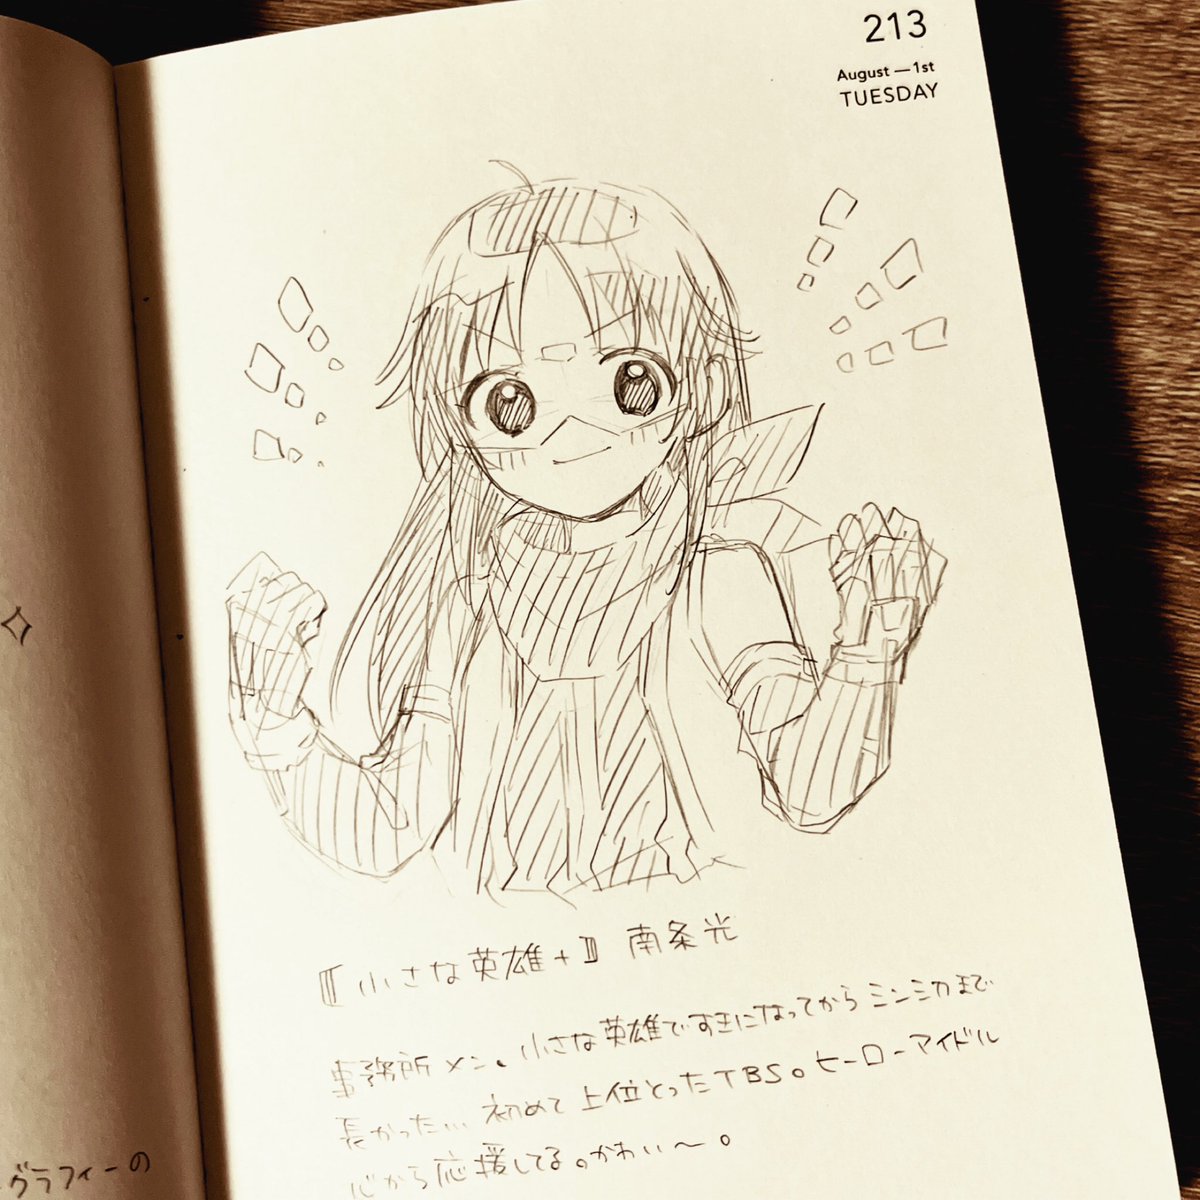 213
August—1st
TUESDAY
【小さな英雄+】 南条光
事務所メン。小さな英雄ですきになってからミンミカまで
長かった… 初めて上位とったTBS。ヒーローアイドル
心から応援してる。かわい〜。
グラフィーの